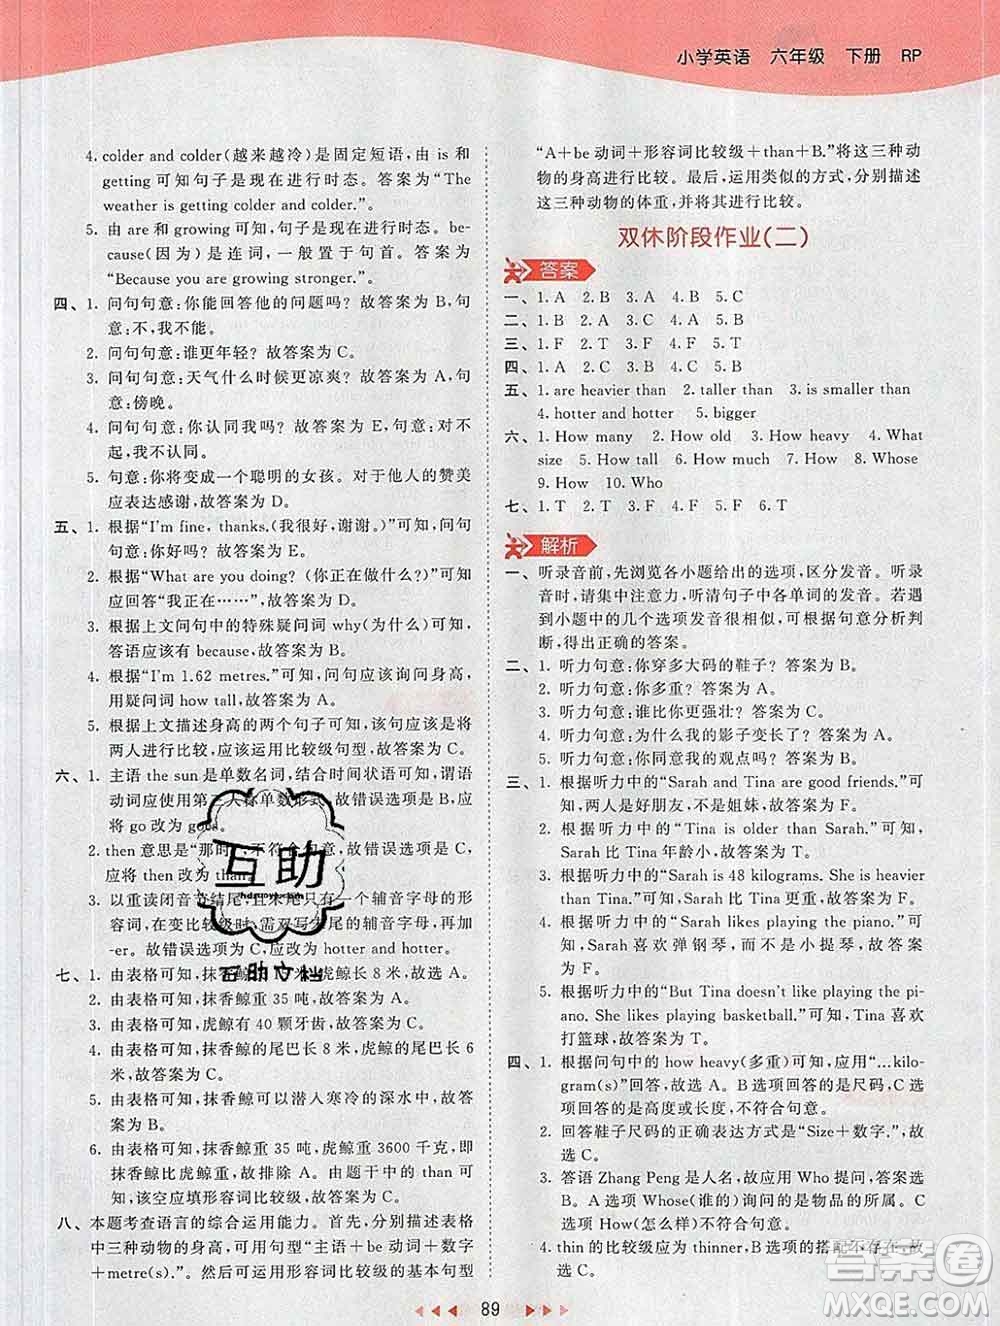 小学英语 六年级 下册 RP
4. colder and colder(越来越冷)是固定短语,由 is 和
getting 可知句子是现在进行时态。答案为“The
weather is getting colder and colder.”。
5. 由 are 和 growing 可知,句子是现在进行时态。be-
cause(因为)是连词,一般放于句首。答案为
“Because you are growing stronger.”。
四、1. 问句句意:你能回答他的问题吗?故答案为 B,句
意:不,我不能。
2. 问句句意:谁更年轻?故答案为 C。
3. 问句句意:天气什么时候更凉爽?故答案为 A,句
意:傍晚。
4. 问句句意:你认同我吗?故答案为 E,句意:对不
起,我不认同。
5. 句意:你将变成一个聪明的女孩。对于他人的赞美
应表达感谢,故答案为 D。
五、1. 根据“I'm fine, thanks.(我很好,谢谢。)”可知,问句
句意:你好吗?故答案为 E。
2. 根据“What are you doing?(你正在做什么?)”可知
应回答“我正在……”,故答案为 D。
3. 根据上文问句中的特殊疑问词 why(为什么)可知,
答语应有 because,故答案为 B。
4. 根据“I'm 1.62 metres.”可知,问句应该询问身高,
用疑问词 how tall,故答案为 A。
5. 根据上文描述身高的两个句子可知,该句应该是将
两人进行比较,应该运用比较级句型,故答案为 C。
六、1. 主语 the sun 是单数名词,结合时间状语可知,谓语
动词应为第三人称单数形式,故错误选项为 B,应
将 go 改为 goes。
2. then 意思是“那时”,不符合句意,故错误选项为 B,
应将 then 改为 than。
3. 以重读闭音节结尾,且末尾只有一个辅音字母的形
容词,在变比较级时,需双写末尾的辅音字母,再加
-er。故错误选项为 C,应改为 hotter and hotter。
七、1. 由表格可知,抹香鲸长 15 米,虎鲸长 8 米,故选 A。
2. 由表格可知,抹香鲸重 35 吨,故答案为 A。
3. 由表格可知,虎鲸有 40 颗牙齿,故答案为 C。
4. 由表格可知,抹香鲸的尾巴长 8 米,虎鲸的尾巴长 6
米,故答案为 C。
5. 由表格可知,抹香鲸可以潜入寒冷的深水中,故答
案为 B。
6. 由表格可知,抹香鲸重 35 吨,虎鲸重 3600 千克,即
抹香鲸比虎鲸重,故排除 A。由题干中的 than 可
知,该空应填形容词比较级,故答案为 B。
八、本题考查语言的综合运用能力。首先,分别描述表格
中三种动物的身高,可用句型“主语+be 动词+数字
+metre(s).”。然后可运用形容词比较级的基本句型
“A+be 动词+形容词比较级+than+B.”将这三种动
物的身高进行比较。最后,运用类似的方式,分别描述
这三种动物的体重,并进行比较。
双休阶段作业(二)
答案
一、1. A 2. B 3. A 4. B 5. C
二、1. B 2. A 3. C 4. A 5. B
三、1. F 2. F 3. T 4. F 5. T
四、1. A 2. C 3. B 4. C 5. A
五、1. are heavier than 2. taller than 3. is smaller than
4. hotter and hotter 5. bigger
六、1. How many 2. How old 3. How heavy 4. What
size 5. How tall 6. How much 7. How 8. Whose
9. How 10. Who
七、1. T 2. T 3. F 4. F 5. T
解析
一、听录音前,先浏览各小题给出的选项,区分发音。听录
音时,请集中注意力,听清句子中各单词的发音。若遇
到小题中的几个选项发音相同,可根据句意分析判
断,得出正确的答案。
二、1. 听力句意:你穿多大码的鞋子?答案为 B。
2. 听力句意:你多重?答案为 A。
3. 听力句意:谁比你更强壮?答案为 C。
4. 听力句意:为什么我的影子变长了?答案为 A。
5. 听力句意:你同意我的观点吗?答案为 B。
三、1. 根据听力中的“Sarah and Tina are good friends.”可
知,两人是好朋友,不是姐妹,故答案为 F。
2. 根据听力中的“Tina is older than Sarah.”可知,
Sarah 比 Tina 年龄小,故答案为 F。
3. 根据听力中的“Sarah is 48 kilograms. She is heavier
than Tina.”可知,Sarah 比 Tina 重,故答案为 T。
4. 根据听力中的“Sarah likes playing the piano.”可知,
Sarah 喜欢弹钢琴,而不是小提琴,故答案
为 F。
5. 根据听力中的“But Tina doesn't like playing the pi-
ano. She likes playing basketball.”可知,Tina 喜欢
打篮球,故答案为 T。
四、1. 根据问句中的 how heavy(多重)可知,应用“…kilo-
gram(s)”回答,故选 A。B 选项回答的是尺码,C 选
项回答的是高度或长度,不符合句意。
2. 回答鞋子尺码的正确表达方式是“Size+数字.”,故
选 C。
3. 答语 Zhang Peng 是人名,故应用 Who 提问,答案为
B。A 选项 Whose(谁的)询问的是物品的所属。C
选项 How(怎么样)不符合句意。
4. thin 的比较级应为 thinner,B 选项的搭配不存在,故
选 C。
互助
互助文档
答案圈
MXQE.COM
89